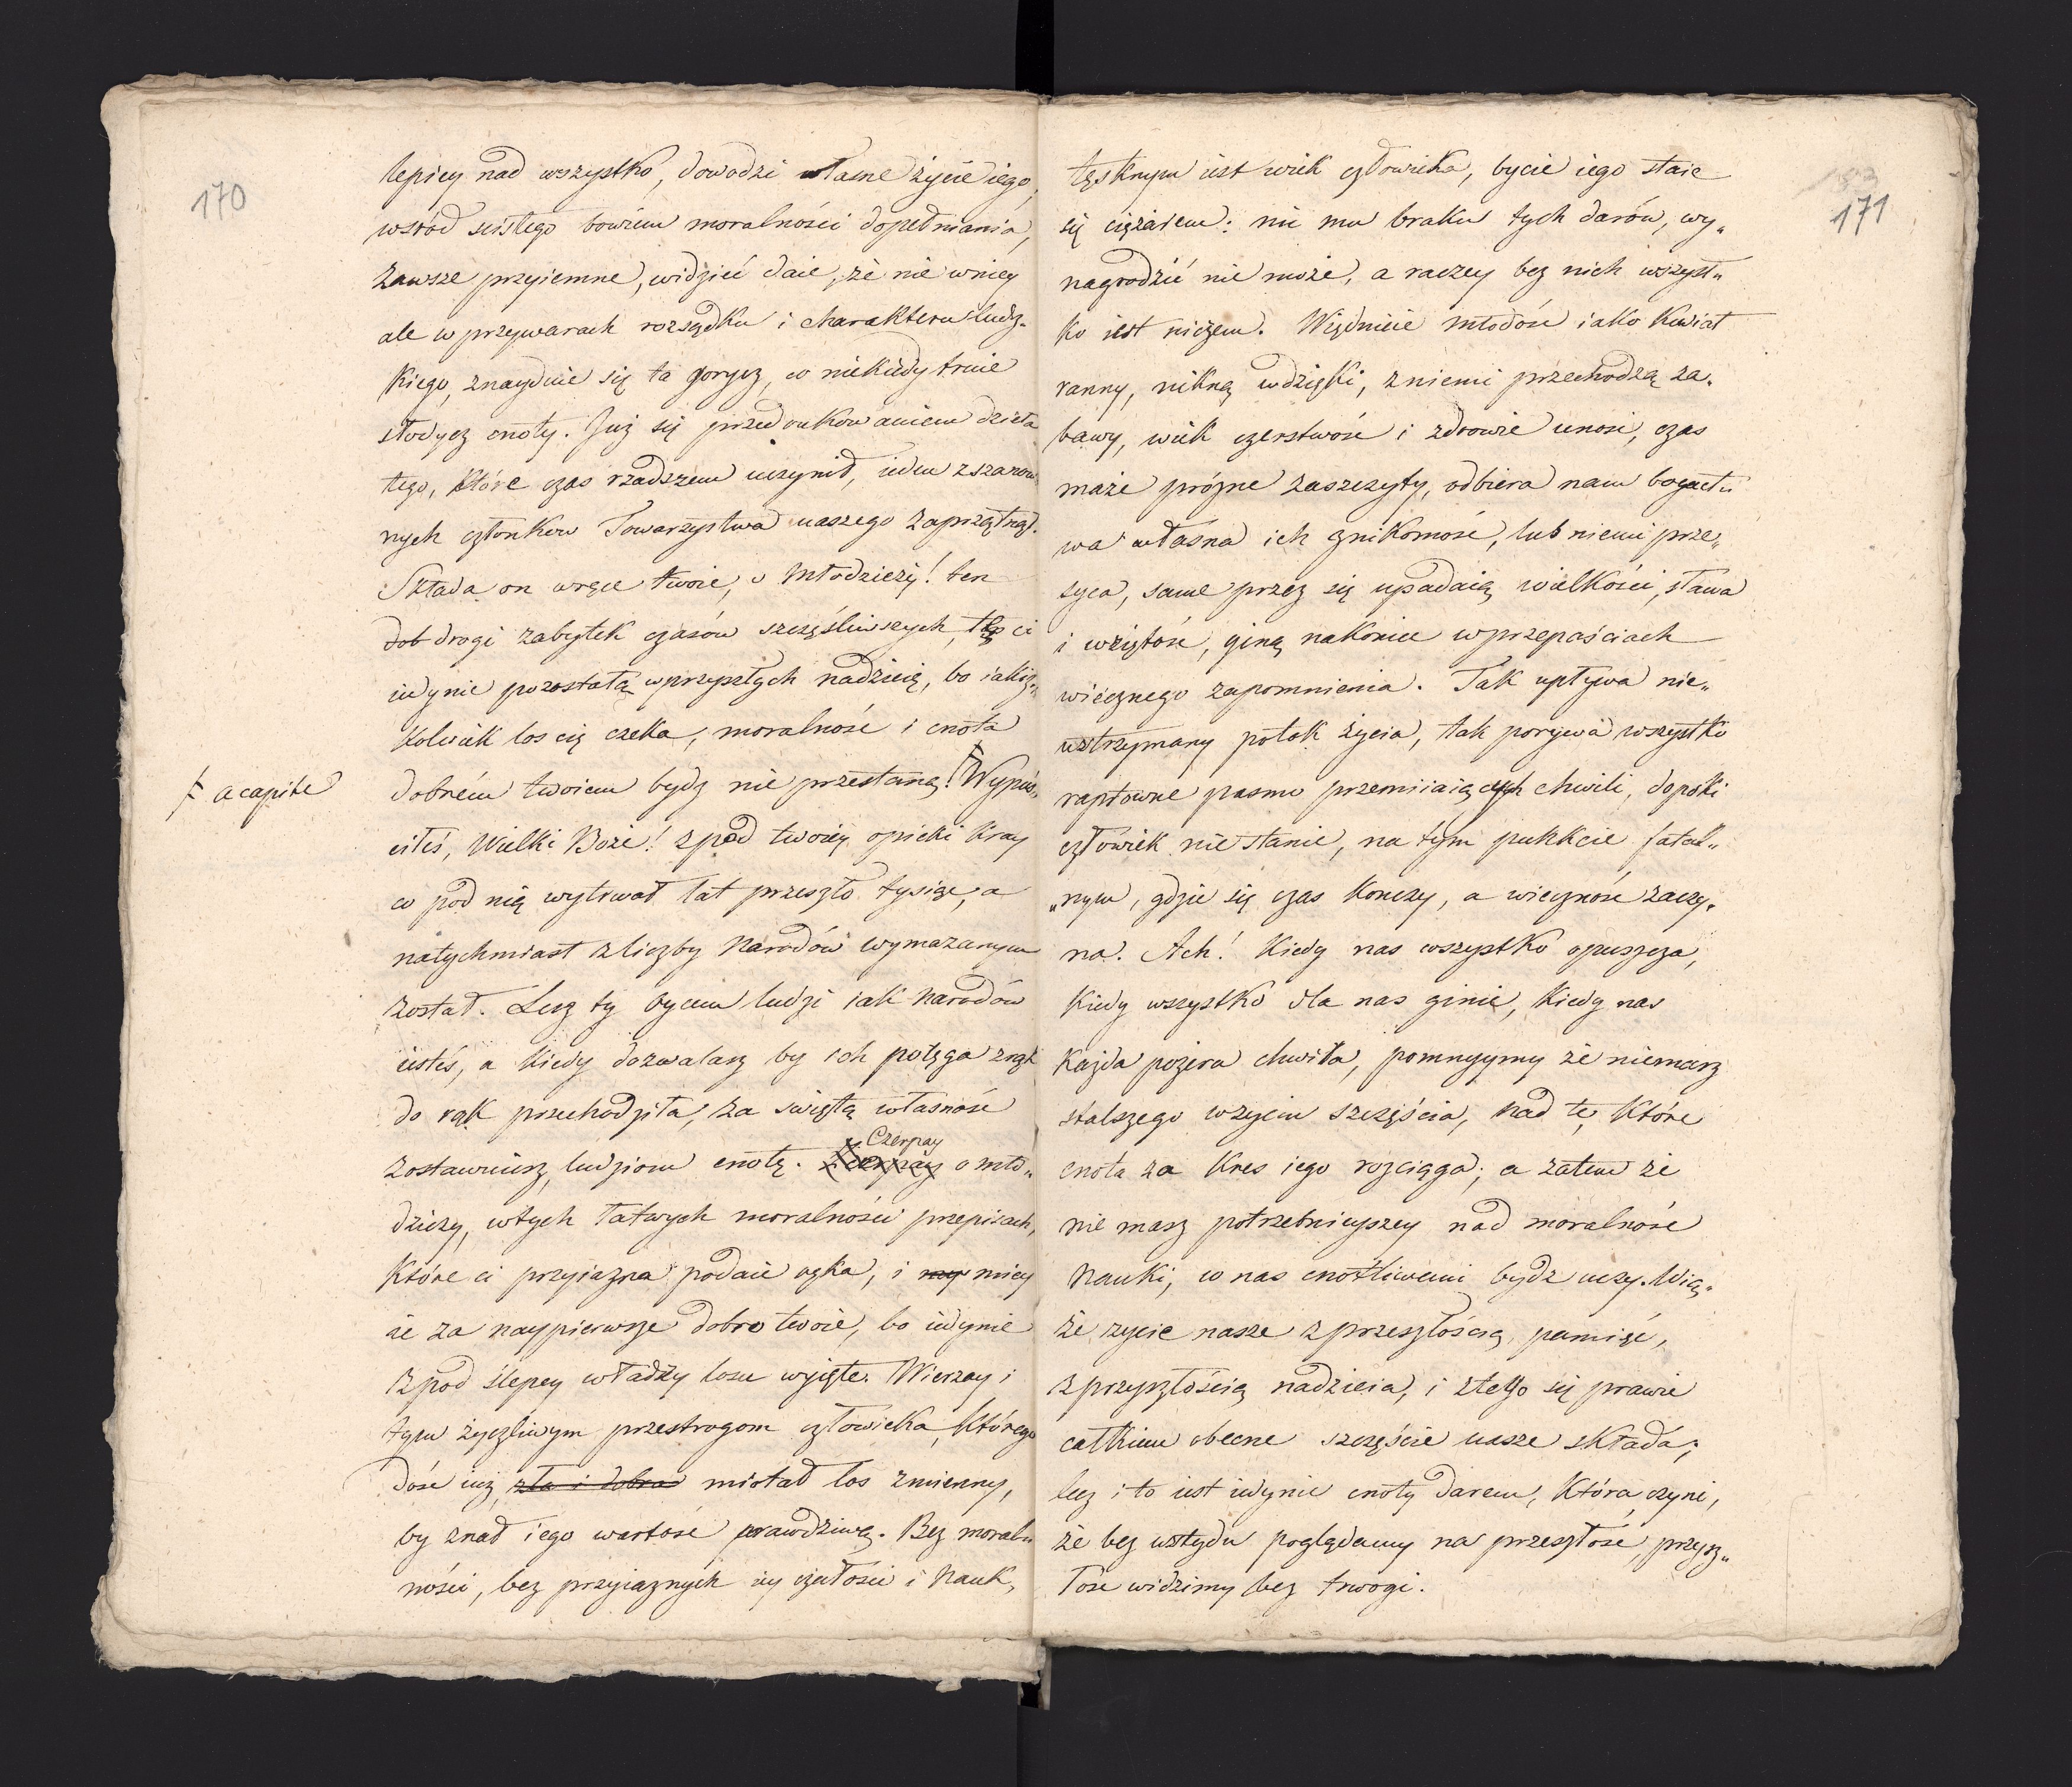 170
lepiey nad wszystko, dowodzi własne życie iego,
wsród scisłego bowiem moralności dopełniania,
zawsze przyiemne, widzieć daie, że nie w niey
ale w przywarach rozsądku i charakteru ludz-
kiego, znayduie się ta gorycz, co niekiedy truie
słodycz cnoty. Już się przedrukowaniem dzieła
tego, które czas rzadszem uczynił, ieden z szanow
nych członków Towarzystwa naszego zaprzątnął.
Składa on w ręce twoie, o Młodzieży! ten
dob drogi zabytek czasów szczęśliwszych, tę ci
iedynie pozostałą w przyszłych nadzieię, bo iakiż„
kolwiek los cię czeka, moralność i cnota
dobrém twoiem bydz nie przestaną! Wypuś„
ƒ acapite
ciłeś, Wielki Boże! z pod twoiéy opieki Kray
co pod nią wytrwał lat przeszło tysiąc, a
natychmiast z liczby Narodów wymazanym
został. Lecz ty oycem ludzi iak Narodów
iesteś, a kiedy dozwalasz by ich potęga z rąk
do rąk przechodziła, za świętą własność
zostawuiesz ludziom cnotę. Czerpay o mło„
dzieży, w tych łatwych moralności przepisach,
które ci przyiazna podaie ręka, i miey
ie za naypierwsze dobro twoie, bo iedynie
z pod ślepey władzy losu wyięte. Wierzay i
tym życzliwym przestrogom człowieka, którego
dość iuż zła i dobra miotał los zmienny,
by znał iego wartość prawdziwą. Bez moral„
ności, bez przyiaznych iey czułości i Nauk,
171
tęsknym iest wiek człowieka, bycie iego staie
się ciężarem: nic mu braku tych darów, wy„
nagrodzić nie może, a raczey bez nich wszyst„
ko iest niczem. Więdnieie młodość iako kwiat
ranny, nikną wdzięki, z niemi przechodzą za„
bawy, wiek czerstwość i zdrowie unosi, czas
maże prózne zaszczyty, odbiera nam bogact„
wa własna ich znikomość, lub niemi prze„
syca, same przez się upadaią wielkości, sława
i wziętość, giną nakoniec w przepaściach
wiecznego zapomnienia. Tak upływa nie„
wstrzymany potok życia, tak porywa wszystko
raptowne pasmo przemiiaiących chwili, dopóki
człowiek nie stanie, na tym punkcie fatal„
„nym, gdzie się czas kończy, a wieczność zaczy„
na. Ach! kiedy nas wszystko opuszcza,
kiedy wszystko dla nas ginie, kiedy nas
każda pożera chwila, pomnyymy że niemasz
stalszego w życiu szczęścia, nad te, które
cnota za kres iego rozciąga; a zatem że
nie masz potrzebnieyszey nad moralność
Nauki, co nas cnotliwemi bydz uczy. Wią„
że życie nasze z przeszłością pamięć,
z przyszłością nadzieia, i z tego się prawie
całkiem obecne szczęście nasze składa;
lecz i to iest iedynie cnoty darem, która czyni,
że bez wstydu poglądamy na przeszłość, przysz„
łość widzimy bez trwogi.